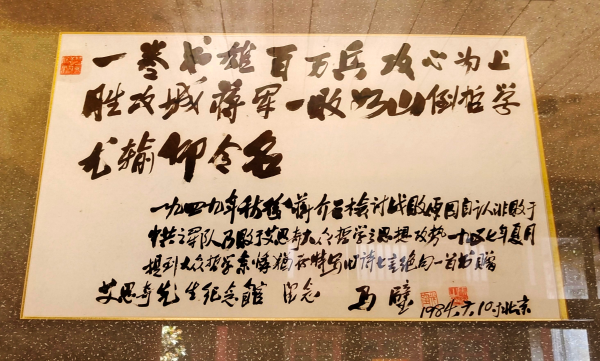 一卷书雄百万兵攻心为上
胜攻城蒋军一败如山倒哲学
尤输仰令名
一九四九年 蒋介石检讨战败原因自认非败于
中共之军队乃败于艾思奇大众哲学之思想攻势 十四 年夏月
提到大众哲学 特写旧诗七言绝句一首书赠
艾思奇先生纪念馆 留念 马璧
1984.6.10.北京